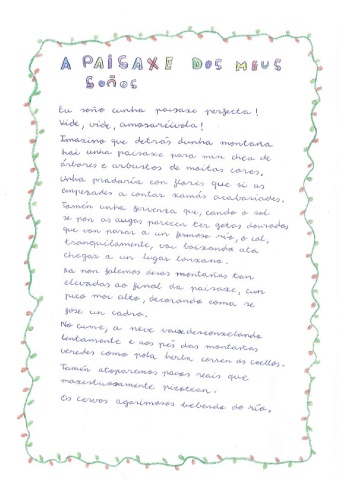 A PAISAXE DOS MEUS
SOÑOS
Eu soño cunha paisaxe perfecta!
Vide, vide, amosaréivola!
Imaxino que detrás dunha montaña
hai unha paisaxe para min chea de
árbores e arbustos de moitas cores.
Unha pradaría con flores que si as
empezades a contar xamás acabariades.
Tamén unha fervenza que, cando o sol
se pon as augas parecen ter gotas douradas
que van parar a un fermoso río, o cal,
tranquilamente, vai baixando ata
chegar a un lugar lonxano.
Xa non falemos desas montañas tan
elevadas ao final da paisaxe, cun
pico moi alto, decorando coma se
fose un cadro.
No cume, a neve vaise desconxelando
lentamente e aos pés das montañas
veredes como pola herba corren os coellos.
Tamén atoparemos pavos reais que
maxestuosamente picotean.
Os cervos agarimosos bebendo do río.